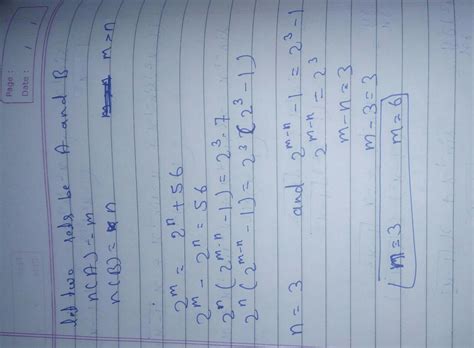 Page :
Date : / /
let two sets be A and B
n(A) = m
n(B) = n m > n
2^m = 2^n + 56
2^m - 2^n = 56
2^n (2^{m-n} - 1) = 2^3 . 7
2^n (2^{m-n} - 1) = 2^3 (2^3 - 1)
n = 3 and 2^{m-n} - 1 = 2^3 - 1
2^{m-n} = 2^3
m - n = 3
m - 3 = 3
m = 3 m = 6